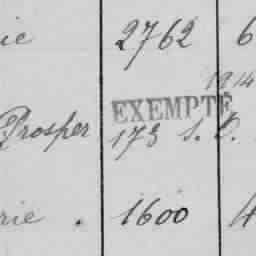 ie 2762 6
1914
EXEMPTÉ
Prosper 173 S. O.
rie . 1600 4